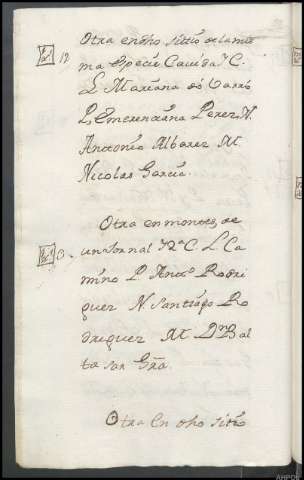 Otra en dho sittio de la mis
12 ma especie Cavida y C.
L. Mariana do Varrio
P. Emerenciana Perez N.
Anttonio Albarez M.
Nicolas Garcia.
Otra en monttes, de
un Jornal y C L Ca
mino P. Antt.o Rodri
guez N. Santtiago Ro
driguez M. Dn Bal
tasar Gra.
Otra en dho sittio
AHPOu